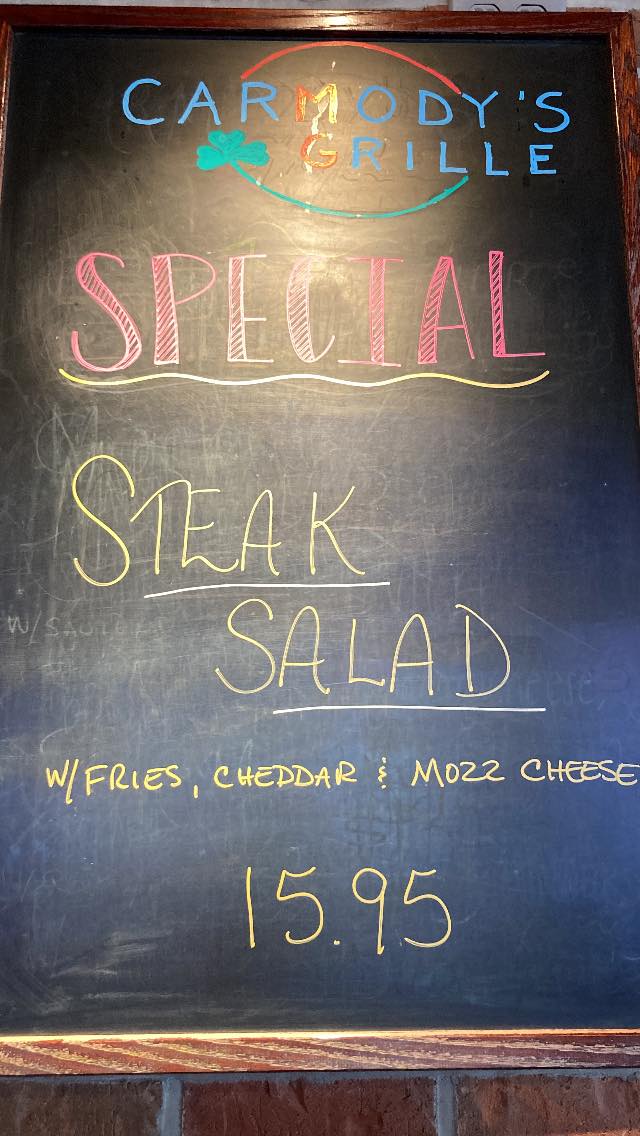 CARMODY'S
GRILLE
SPECIAL
STEAK
SALAD
W/FRIES, CHEDDAR & MOZZ CHEESE
15.95